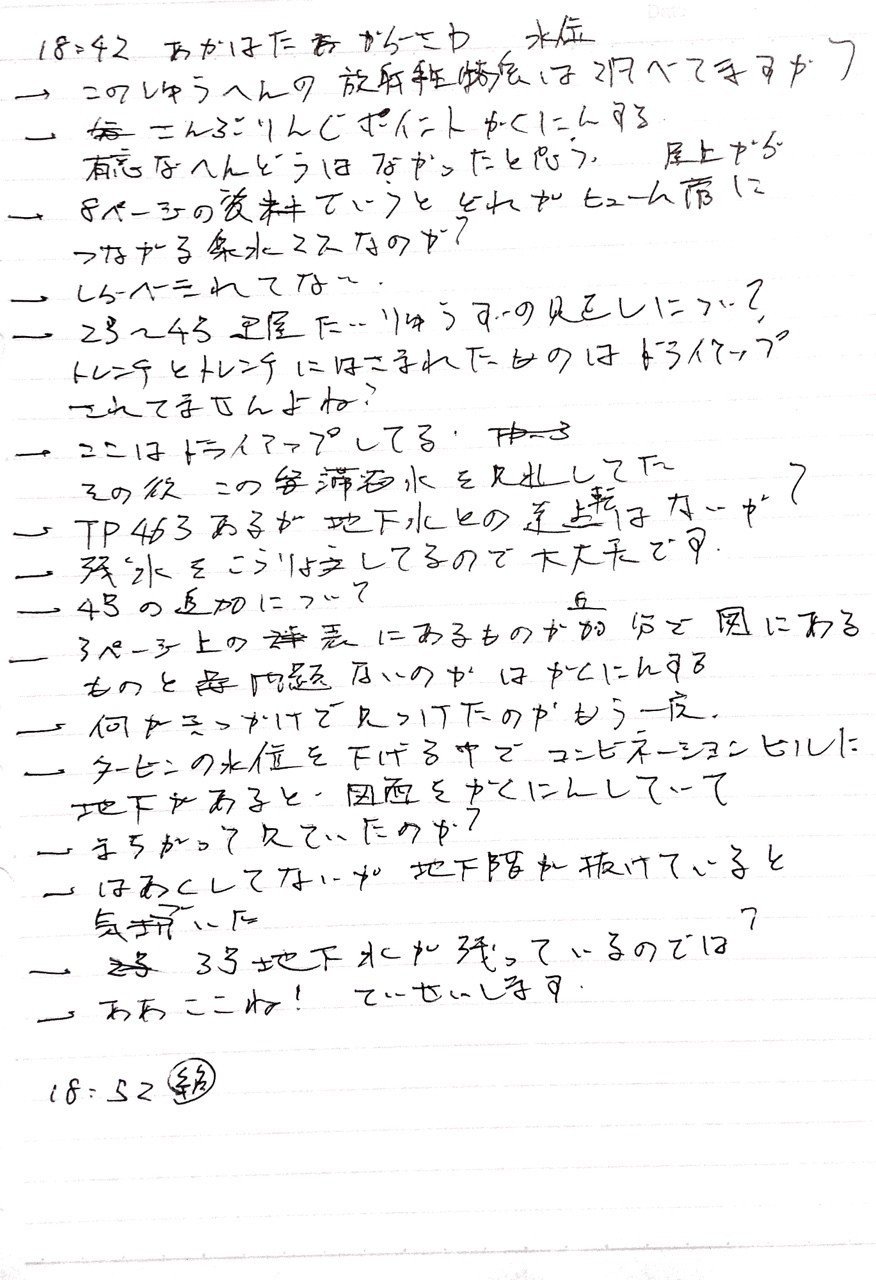 18:42 あかはた からさわ 水位
→ このしゅうへんの 放射性物質は 調べてますか?
→ さんぷりんぐポイント かくにんする
有意なへんどうは なかったと思う. 屋上から
→ 8ページの後半でいうと どれが ヒューム管に
つながる集水マスなのか?
→ しらべきれてない.
→ 2号〜4号 建屋たいりゅうすいの見直しについて,
トレンチとトレンチにはさまれたものは ドライアップ
されてませんよね?
→ ここはドライアップしてる.
その後 この 滞留水を見直してた
→ TP463 あるが 地下水との逆転はないか?
→ 残水をこうりょしてるので大丈夫です.
→ 4号の追加について
→ 3ページ上の 表にあるものが 分で 図にある
ものと 問題ないのか はかくにんする
→ 何がきっかけで見つけたのか もう一度.
→ タービンの水位を下げる中で コンビネーションビルに
地下があると. 図面をかくにんしていて
→ まちがって見ていたのか?
→ はあくしてないが 地下階が抜けていると
気づいた
→ 3号地下水が残っているのでは?
→ ああここね! ていせいします.
18:52 終